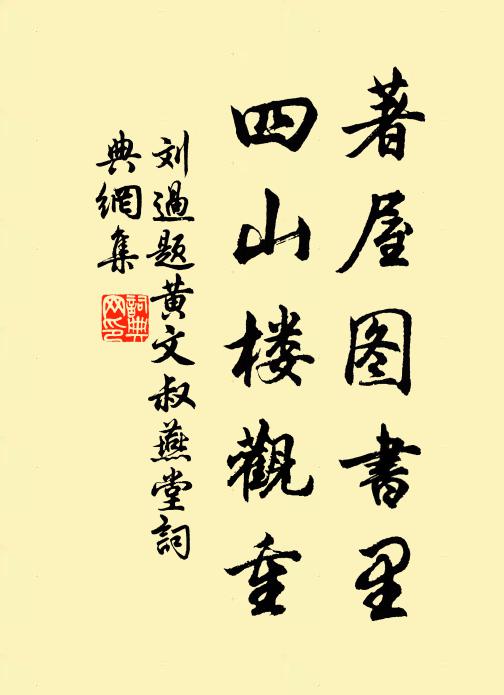 著屋图书里
四山楼觀重
刘過题黄文叔燕堂詞
典網集
詞典网印